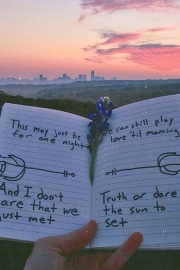 This may just be
for one night
And I don't
care that we
just met
We can still play
love 'til morning
Truth or dare
the sun to
set